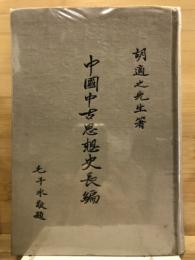 胡適之先生著
中國中古思想史長編
毛子水敬題